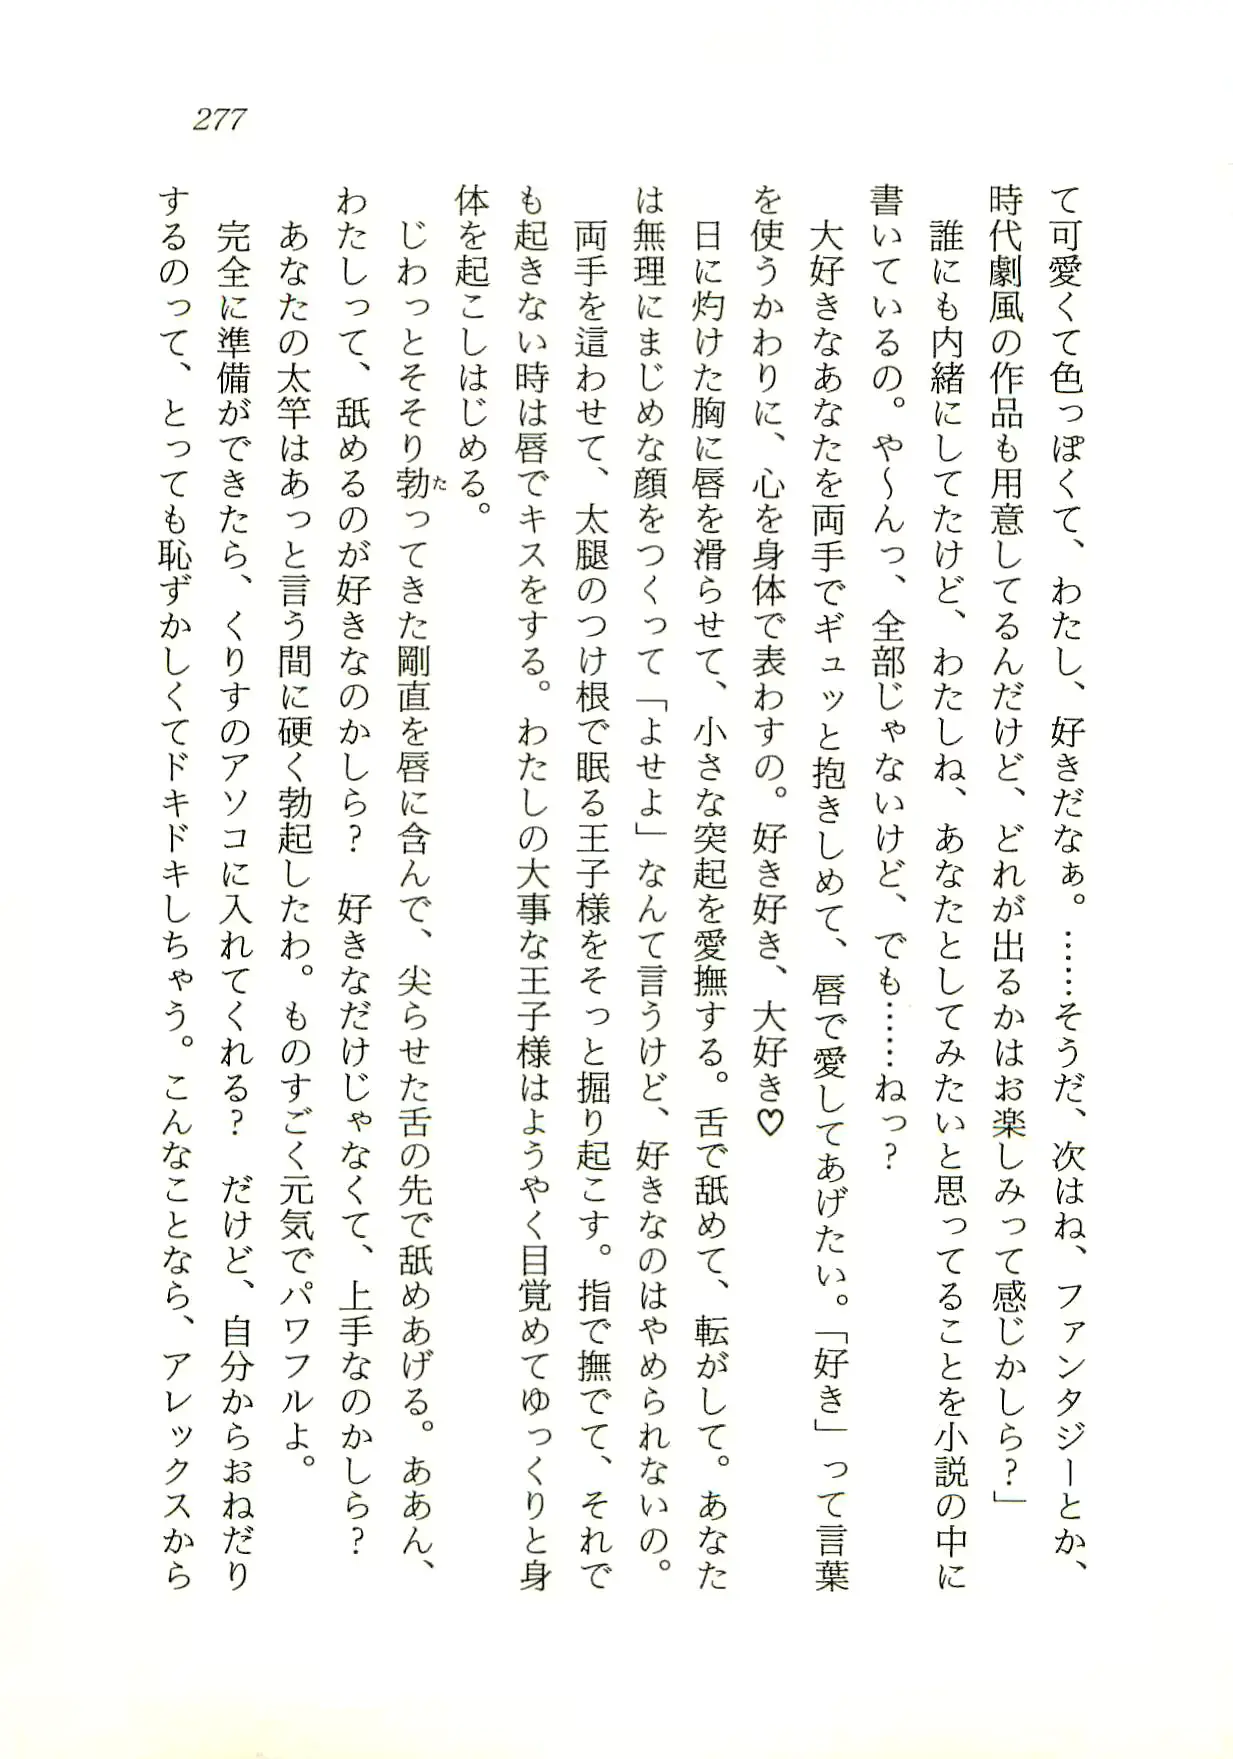 277
て可愛くて色っぽくて、わたし、好きだなぁ。……そうだ、次はね、ファンタジーとか、
時代劇風の作品も用意してるんだけど、どれが出るかはお楽しみって感じかしら？」
誰にも内緒にしてたけど、わたしね、あなたとしてみたいと思ってることを小説の中に
書いているの。や〜んっ、全部じゃないけど、でも……ねっ？
大好きなあなたを両手でギュッと抱きしめて、唇で愛してあげたい。「好き」って言葉
を使うかわりに、心を身体で表わすの。好き好き、大好き♡
日に灼けた胸に唇を滑らせて、小さな突起を愛撫する。舌で舐めて、転がして。あなた
は無理にまじめな顔をつくって「よせよ」なんて言うけど、好きなのはやめられないの。
両手を這わせて、太腿のつけ根で眠る王子様をそっと掘り起こす。指で撫でて、それで
も起きない時は唇でキスをする。わたしの大事な王子様はようやく目覚めてゆっくりと身
体を起こしはじめる。
じわっとそそり勃ってきた剛直を唇に含んで、尖らせた舌の先で舐めあげる。ああん、
わたしって、舐めるのが好きなのかしら？　好きなだけじゃなくて、上手なのかしら？
あなたの太竿はあっと言う間に硬く勃起したわ。ものすごく元気でパワフルよ。
完全に準備ができたら、くりすのアソコに入れてくれる？　だけど、自分からおねだり
するのって、とっても恥ずかしくてドキドキしちゃう。こんなことなら、アレックスから